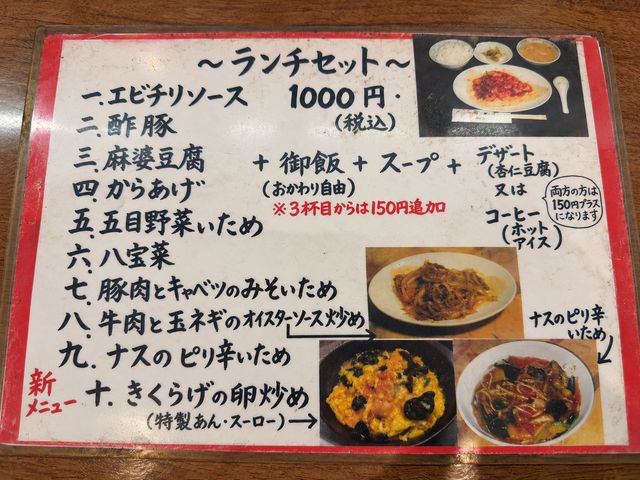 〜ランチセット〜
一.エビチリソース 1000円.
二.酢豚 (税込)
三.麻婆豆腐 + 御飯 + スープ + デザート
(おかわり自由) (杏仁豆腐)
四.からあげ 又は
※3杯目からは150円追加
両方の方は
150円プラス
になります
五.五目野菜いため コーヒー
(ホット
アイス)
六.八宝菜
七.豚肉とキャベツのみそいため
八.牛肉と玉ネギのオイスターソース炒め
ナスのピリ辛
いため
九.ナスのピリ辛いため
新
メニュー
十.きくらげの卵炒め
(特製あん・スーロー)